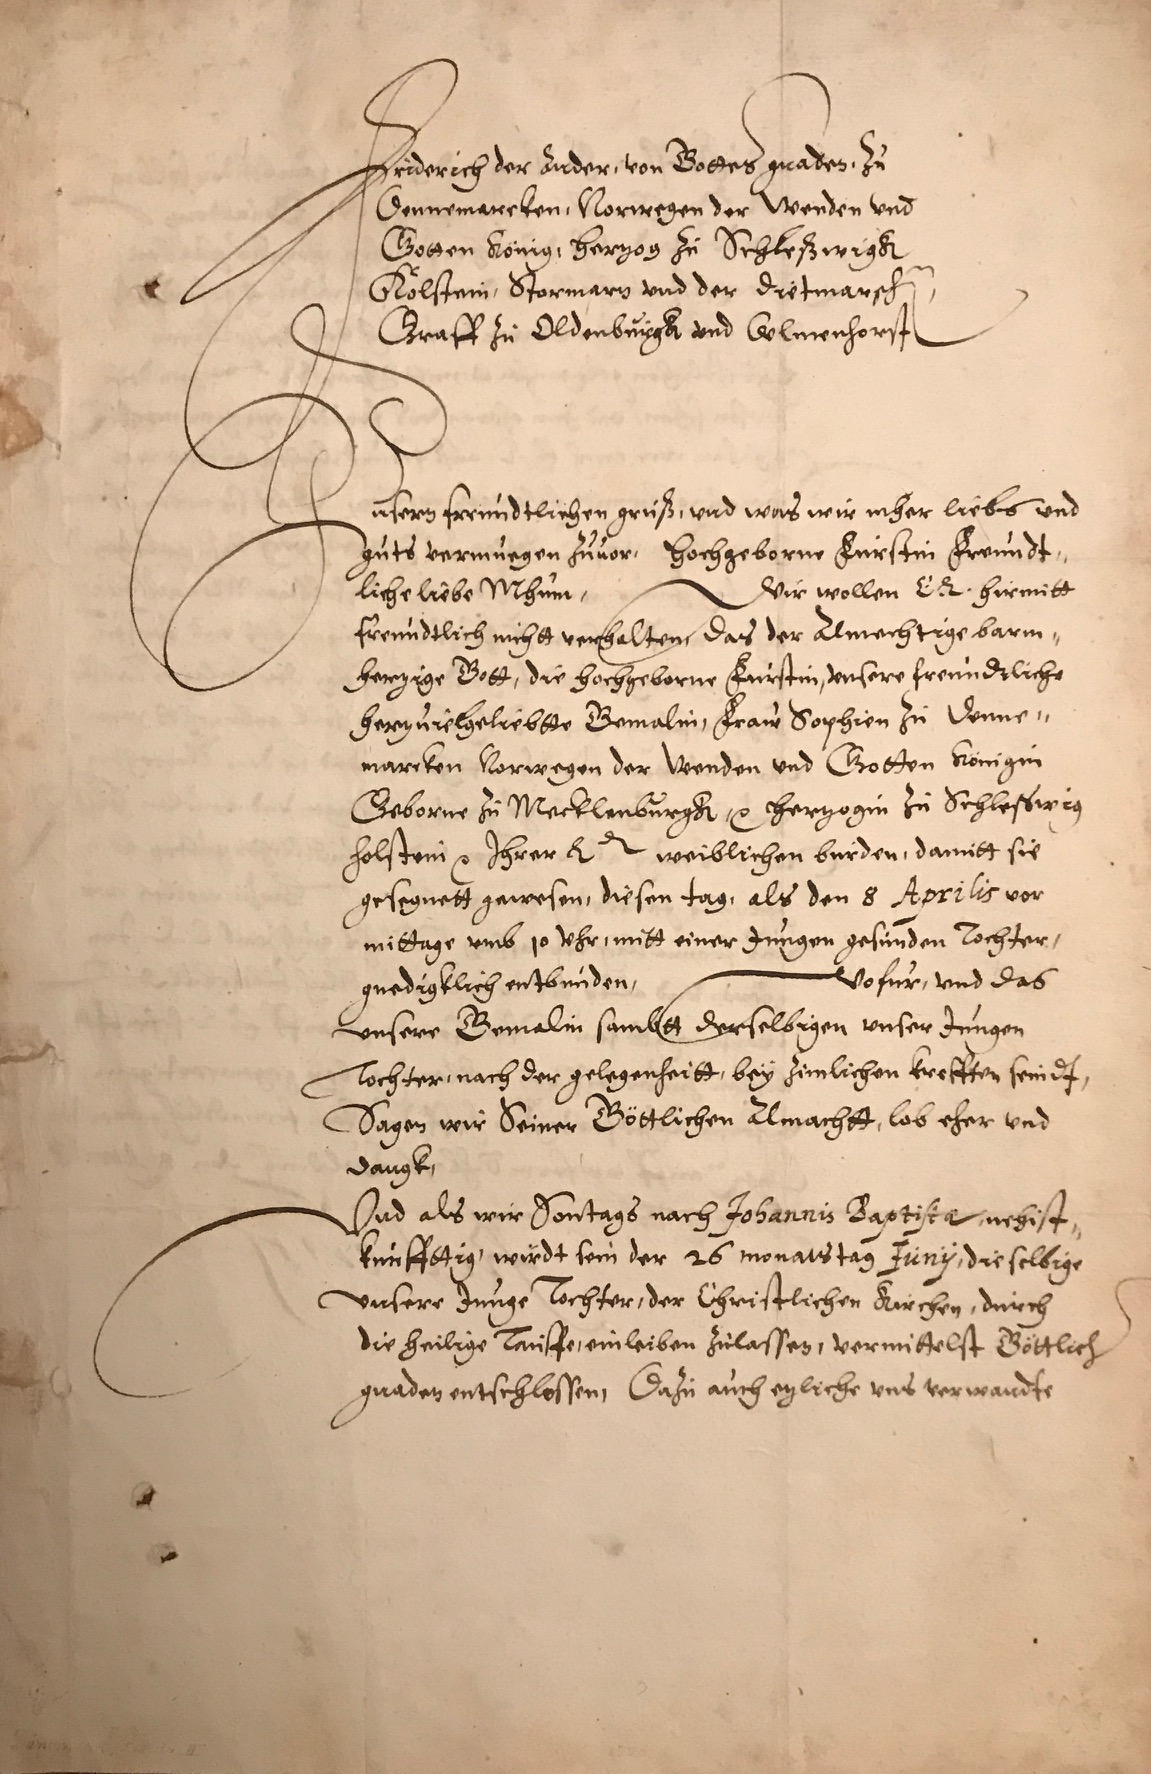 Friderich der Ander, von Gottes gnaden, Zu
Dennemarcken, Norwegen der Wenden und
Gotten König, Hertzog Zu Schleßwigk
Holstein, Stormarn und der Dietmarschen,
Graff Zu Oldenburgk und Delmenhorst
Unsern freundtlichen gruß, und was wir mher liebs und
guts vermuegen Zuuor, Hochgeborne Furstin Freundt,,
liche liebe Mhum, Wir wollen E L. hirmitt
freundtlich nichtt verhalten, das der Almechtige barm,,
hertzige Gott, die hochgeborne Furstin, unsere freundtliche
hertzuielgeliebtte Gemalin, Fraw Sophien Zu Denne,,
marcken Norwegen der Wenden und Gotten Königin
Geborne Zu Mecklenburgk, Hertzogin Zu Schlesswig
Holstein Ihrer L weiblichen burden, damitt sie
gesegnett gewesen, diesen tag, als den 8 Aprilis vor
mittage umb 10 Uhr, mitt einer Jungen gesunden Tochter,
gnedigklich entbunden, Wofur, und das
unsere Gemalin sambtt derselbigen unser Jungen
Tochter, nach der gelegenheitt, bey Zimlichen krefften seindt,
Sagen wir Seiner Göttlichen Almachtt, lob eher und
danngk,
Und als wir Sontags nach Johannis Baptistæ, nehist,,
kunfftig, wirdt sein der 26 monatstag Junij, die selbige
unsere Junge Tochter, der Christlichen Kirchen, durch
die heilige Tauffe, einleiben Zulassen, vermittelst Göttlich
gnaden entschlossen, Dazu auch etzliche uns verwandte